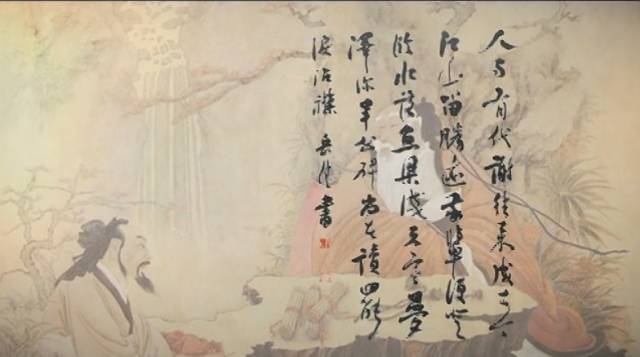 人事有代謝往来成古今
江山留勝迹我輩復登
臨水落魚梁淺天寒夢
澤深羊公碑尚在讀罷
淚沾襟 書